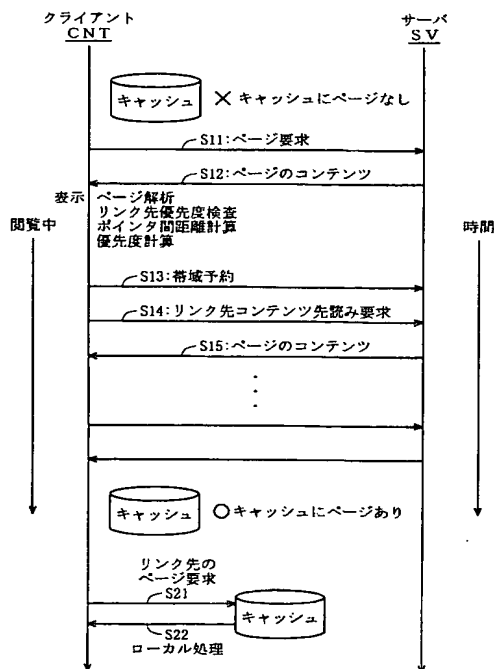 クライアント
CNT
サーバ
SV
キャッシュ
✕ キャッシュにページなし
S11:ページ要求
S12:ページのコンテンツ
表示
ページ解析
リンク先優先度検査
ポインタ間距離計算
優先度計算
閲覧中
時間
S13:帯域予約
S14:リンク先コンテンツ先読み要求
S15:ページのコンテンツ
キャッシュ
○キャッシュにページあり
リンク先の
ページ要求
S21
キャッシュ
S22
ローカル処理